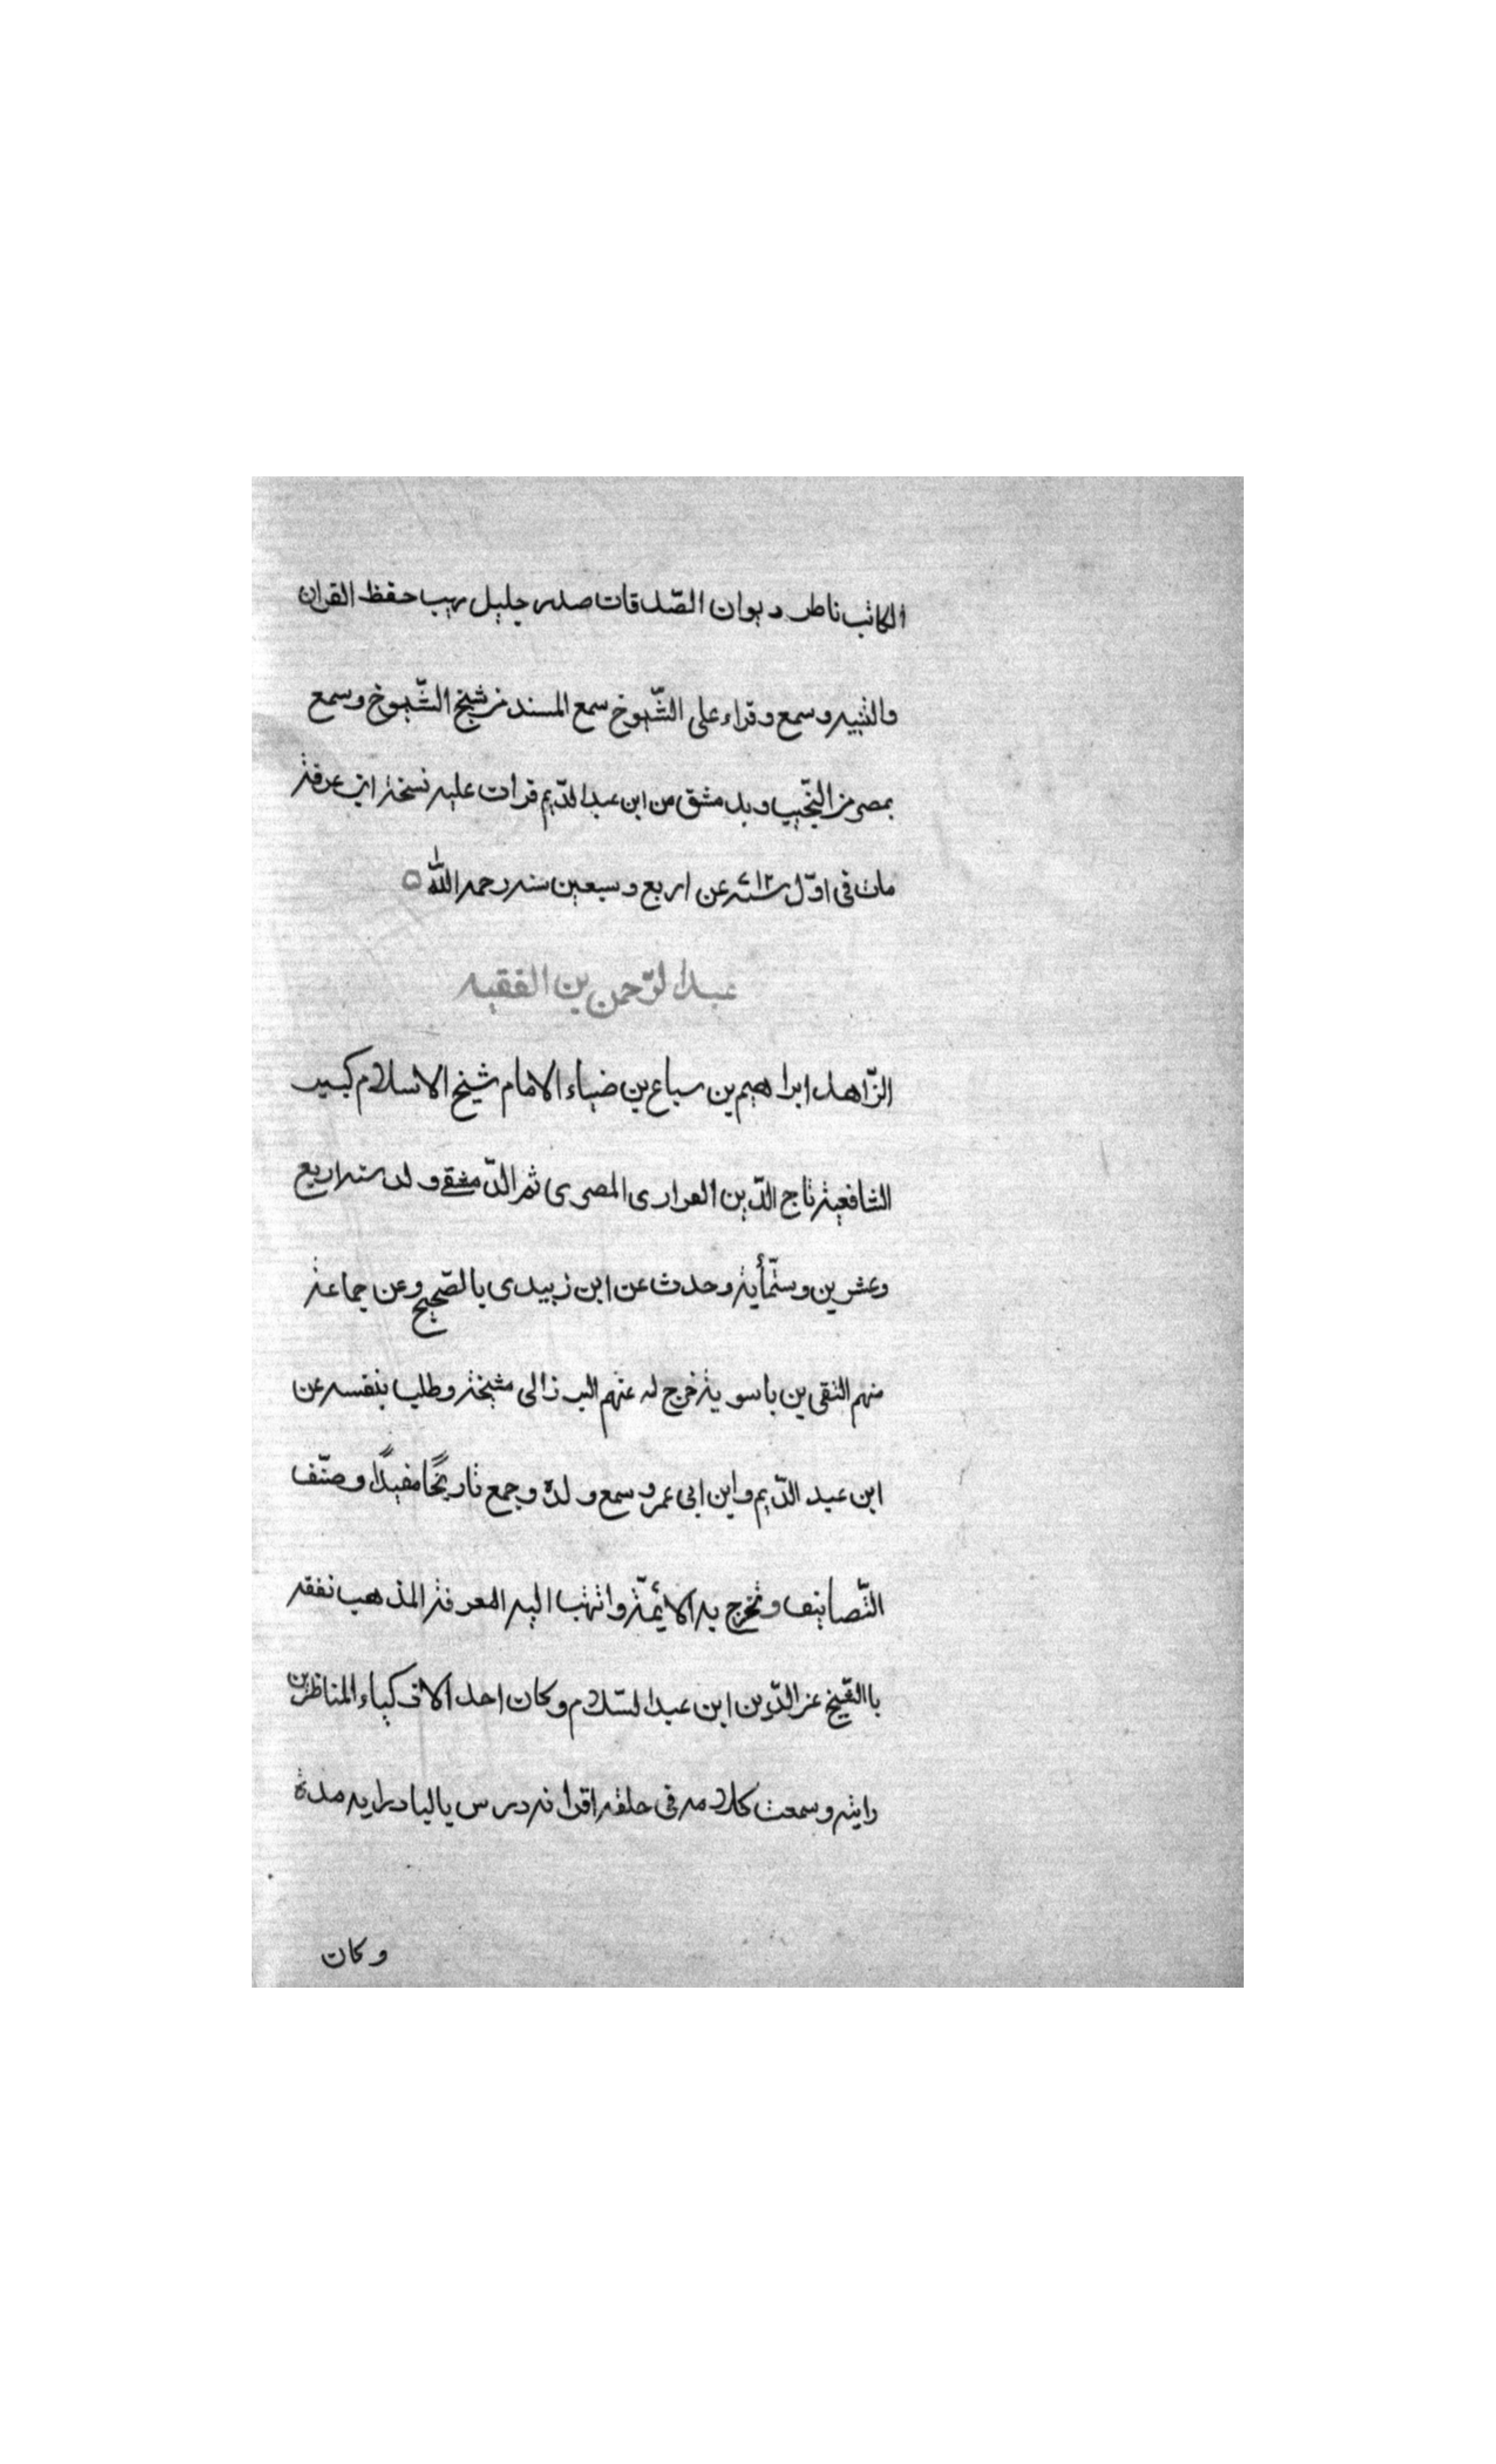 الكاتب ناطر ديوان الصّدقات صدر جليل رييب حفظ القران
والتنبيه وسمع وقراء على الشّيوخ سمع المسند من شيخ الشّيوخ وسمع
بمصر من النّجيب وبدمشق من ابن عبد الدّيم قرات عليه نسخة ابن عرفة
مات فى اوّل سنة ٧١٢ عن اربع وسبعين سنه رحمه اللّٰه
عبد الرّحمن بن الفقيه
الزّاهد ابراهيم بن سباع بن ضياء الامام شيخ الاسلام كبير
الشافعية تاج الدّين الفرارى المصرى ثم الدّمشقى ولد سنه اربع
وعشرين وستّمأية وحدث عن ابن زبيدى بالصّحيح وعن جماعة
منهم التقى بن باسوية خرج له عنهم البرزالى مشيخة وطلب بنفسه عن
ابن عبد الدّيم وابن ابى عمر وسمع ولدة وجمع تاريخًا مفيدًا وصنّف
التّصانيف وتخرج به الايمّة وانتهت اليه المعرفة المذهب تفقه
باالشّيخ عز الدّين ابن عبد السّلام وكان احد الاذكياء المناظرين
رايته وسمعت كلامه فى حلقه اقرانه درس بالبادرايه مدة
وكان